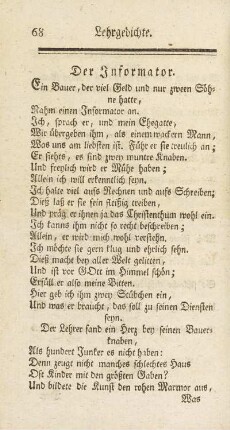 68 Lehrgedichte.
Der Informator.
Ein Bauer, der viel Geld und nur zween Söh-
ne hatte,
Nahm einen Informator an.
Ich, sprach er, und mein Ehegatte,
Wir übergeben ihm, als einem wackern Mann,
Was uns am liebsten ist. Führ er sie treulich an;
Er siehts, es sind zwey muntre Knaben.
Und freylich wird er Mühe haben;
Allein ich will erkenntlich seyn.
Ich halte viel aufs Rechnen und aufs Schreiben;
Dieß laß er sie fein fleißig treiben,
Und präg er ihnen ja das Christenthum wohl ein.
Ich kanns ihm nicht so recht beschreiben;
Allein, er wird mich wohl verstehn.
Ich möchte sie gern klug und ehrlich sehn.
Dieß macht bey aller Welt gelitten,
Und ist vor GOtt im Himmel schön;
Erfüll er also meine Bitten.
Hier geb ich ihm zwey Stübchen ein,
Und was er braucht, das soll zu seinen Diensten
seyn.
Der Lehrer fand ein Herz bey seinen Bauer-
knaben,
Als hundert Junker es nicht haben:
Denn zeugt nicht manches schlechtes Haus
Oft Kinder mit den größten Gaben?
Und bildete die Kunst den rohen Marmor aus,
Was